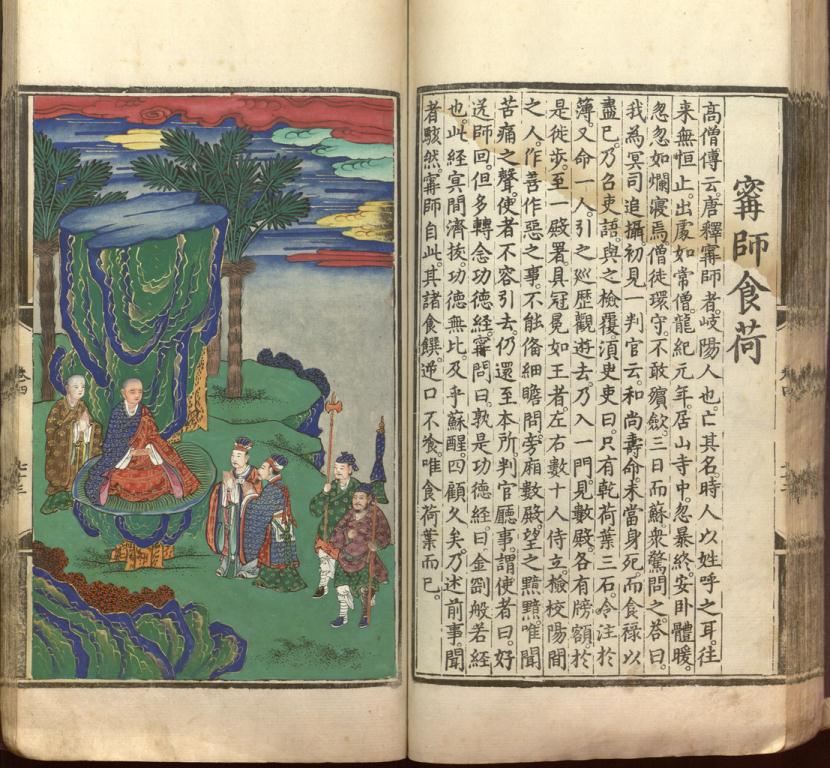 甯師食荷
高僧傳云。唐釋甯師者。岐陽人也。亡其名。時人以姓呼之耳。往
来無恒止。出處如常僧。龍紀元年。居山寺中。忽暴終。安卧體暖。
忽忽如爛寢焉。僧徒環守。不敢殯歛。三日而蘇。衆驚問之。荅曰。
我為冥司追攝。初見一判官云。和尚壽命。未當身死。而食祿以
盡已。乃召吏語。與之檢覆。須吏吏曰。只有乾荷葉三石。令注於
簿。又命一人。引之巡歷觀遊去。乃入一門。見數殿。各有牓額。於
是徙步。至一殿署。具冠冕如王者。左右數十人侍立。檢校陽間
之人。作善作惡之事。不能俻細瞻問。旁廂數殿。望之黯黯。唯聞
苦痛之聲。使者不容引去。仍還至本所。判官廳事。謂使者曰。好
送師回。但多轉念功徳經。甯問曰。孰是功徳經。曰。金剛般若經
也。此經冥間濟拔。功徳無比。及乎蘇醒。四顧久矣。乃述前事。聞
者駭然。甯師自此。其諸食饌。逆口不飡。唯食荷葉而已。
卷四